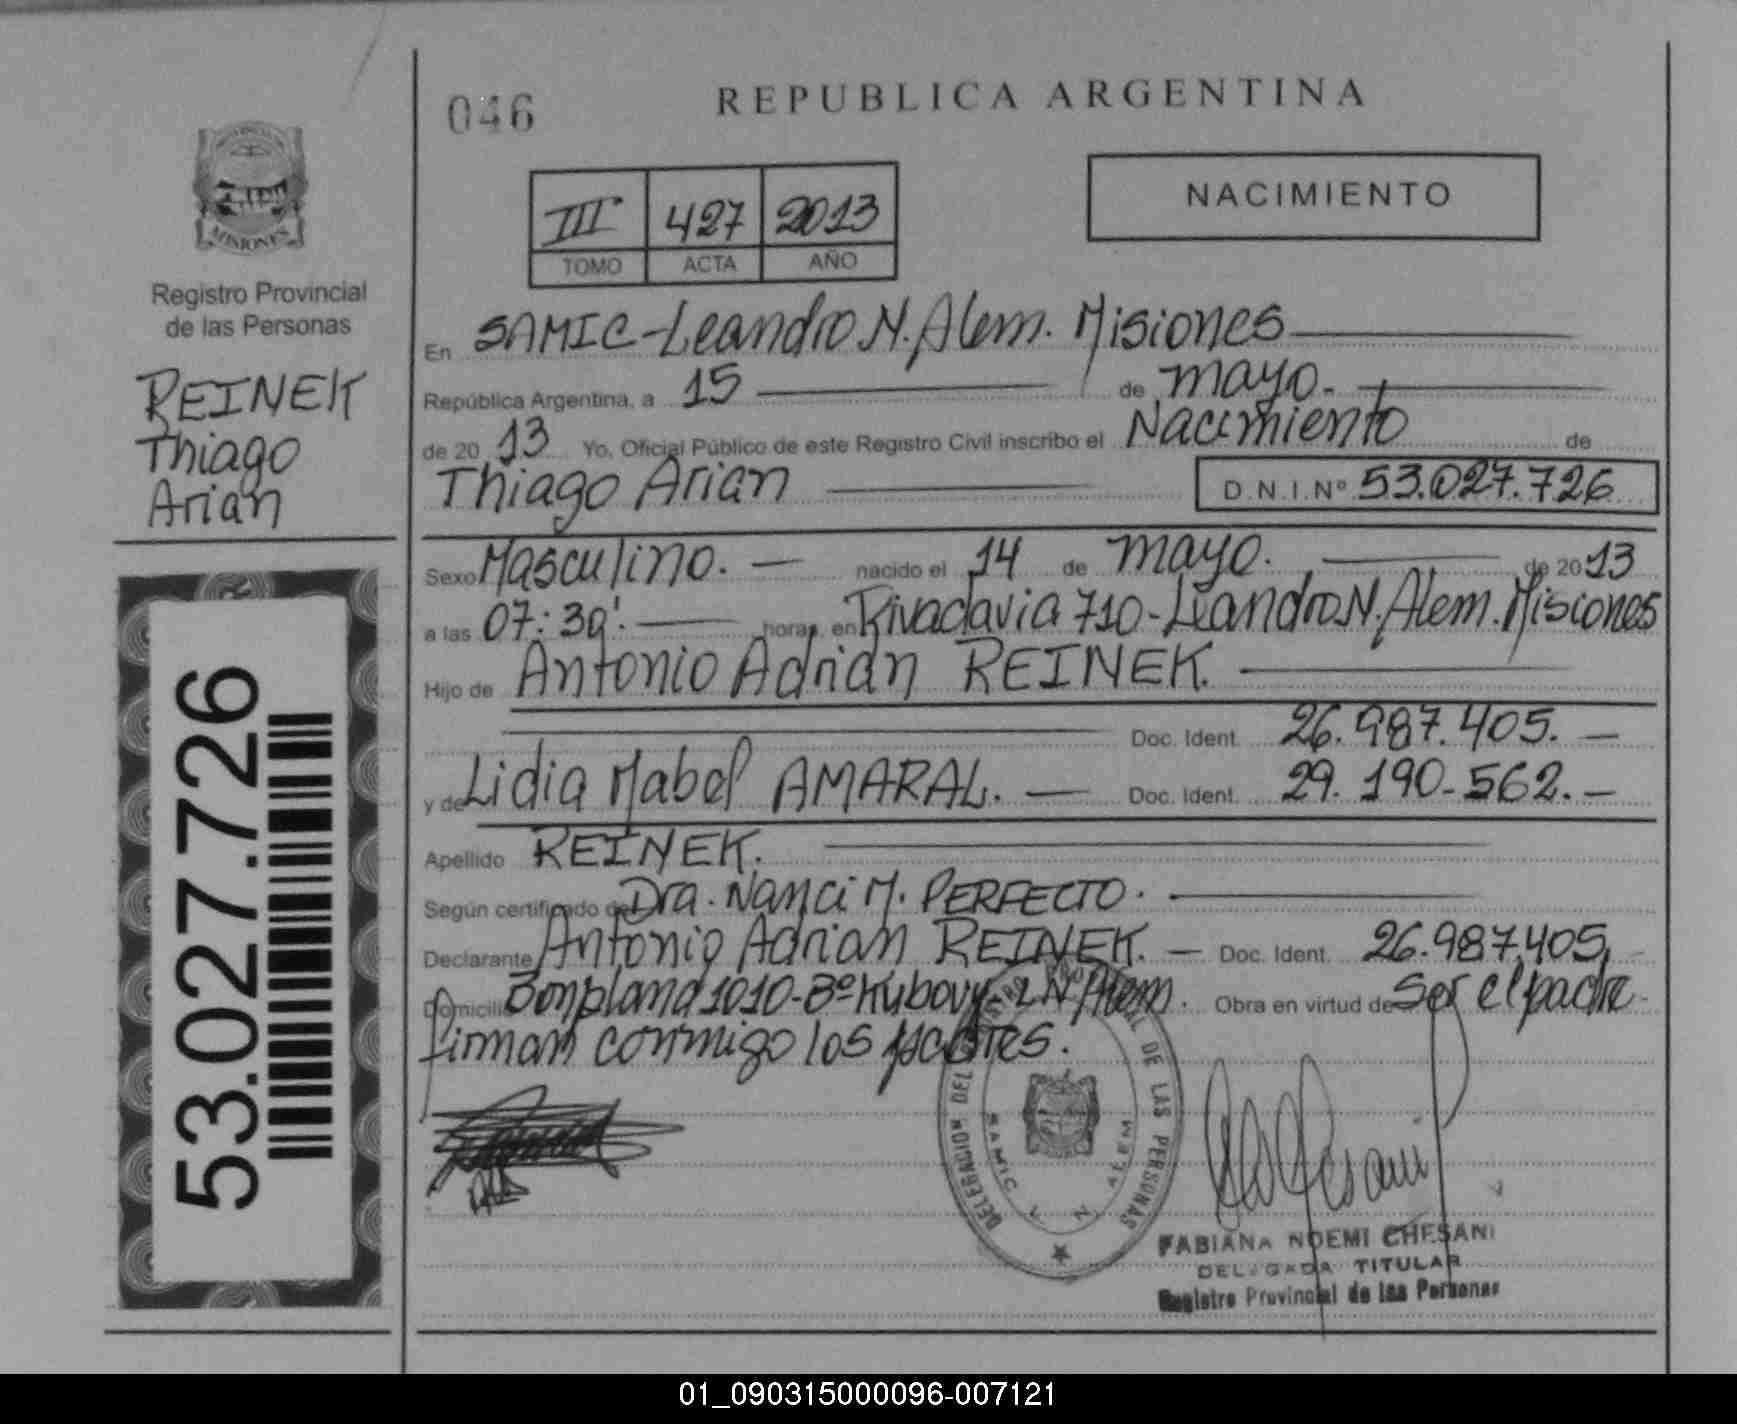 046
REPUBLICA ARGENTINA
MISIONES
Registro Provincial
de las Personas
REINEK
Thiago
Arian
53.027.726
III 427 2013
TOMO ACTA AÑO
NACIMIENTO
En SAMIC-Leandro N. Alem. Misiones
República Argentina, a 15 de mayo.
de 2013 Yo, Oficial Público de este Registro Civil inscribo el Nacimiento de
Thiago Arian D.N.I.Nº 53.027.726
Sexo Masculino. nacido el 14 de mayo. de 2013
a las 07:30'. horas, en Rivadavia 710-Leandro N. Alem. Misiones
Hijo de Antonio Adrian REINEK.
Doc. Ident. 26.987.405.
y de Lidia Mabel AMARAL. Doc. Ident. 29.190-562.
Apellido REINEK.
Según certificado de Dra. Nanci M. PERFECTO.
Declarante Antonio Adrian REINEK. Doc. Ident. 26.987.405,
Domicilio Bonpland 1010-Bº Kubovy-LN Alem. Obra en virtud de Ser el padre
firman conmigo los padres.
DELEGACION DEL REGISTRO PROVINCIAL DE LAS PERSONAS
SAMIC L N ALEM
FABIANA NOEMI CHESANI
DELEGADA TITULAR
Registro Provincial de las Personas
01_090315000096-007121